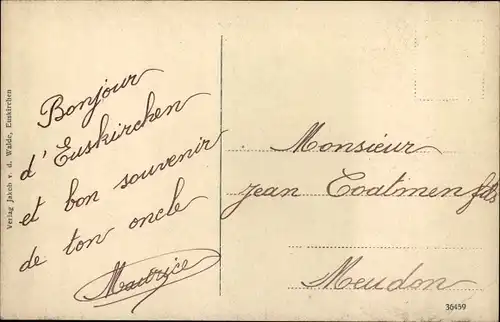 Verlag Jakob v. d. Walde, Euskirchen
Bonjour
d'Euskirchen
et bon souvenir
de ton oncle
Maurice
Monsieur
Jean Coatmen fils
Meudon
36459